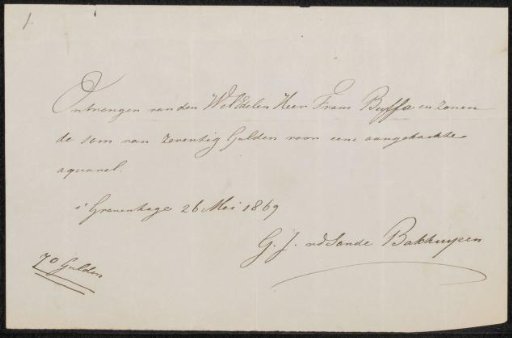 1.
Ontvangen van den WelEdelen Heer Frans Buffa en zonen
de som van zeventig Gulden voor eene aangekochte
aquarel.
's Gravenhage 26 Mei 1869
G. J. vd Sande Bakhuyzen
70 Gulden